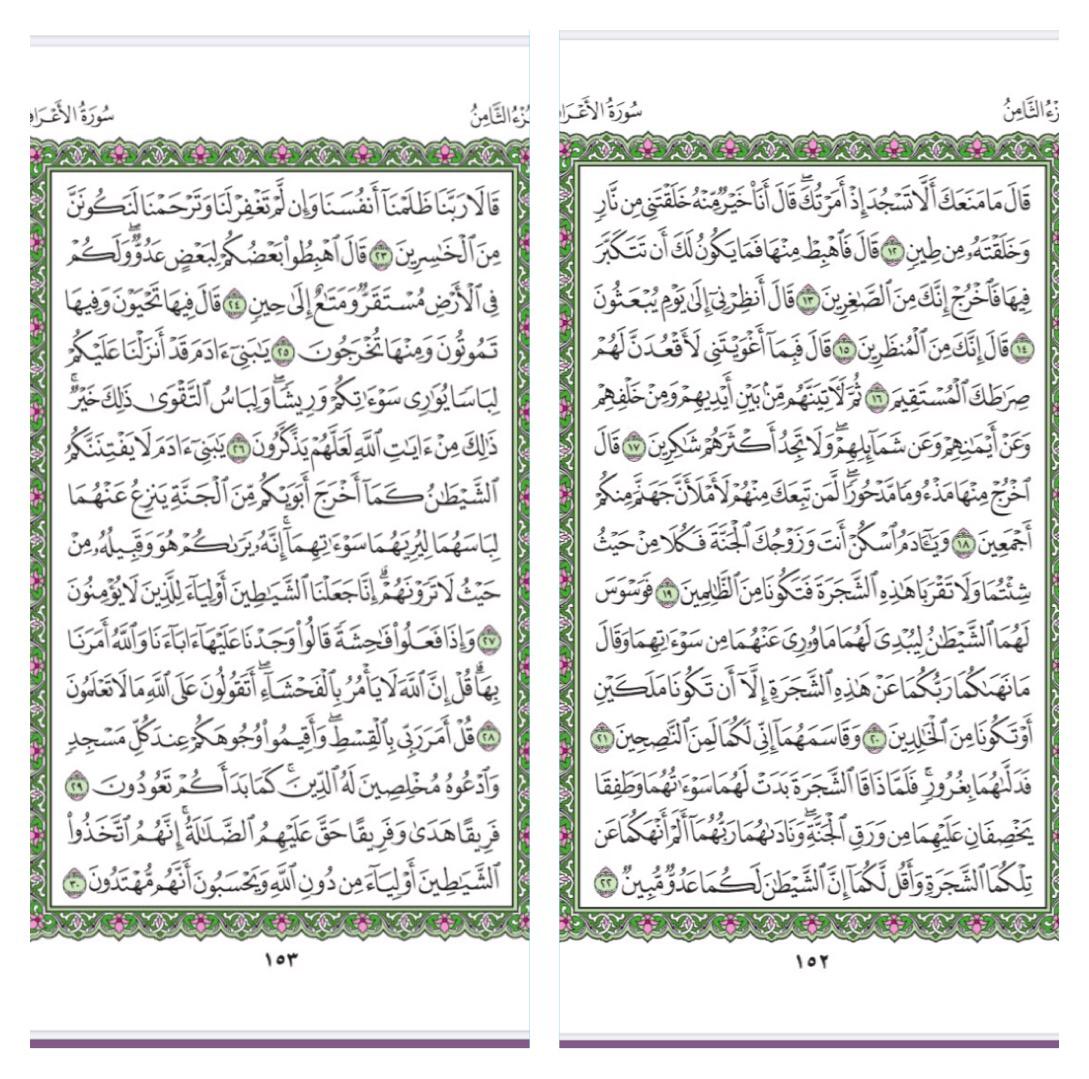 الجزء الثامن
سورة الأعراف
قَالَ مَا مَنَعَكَ أَلَّا تَسْجُدَ إِذْ أَمَرْتُكَ ۖ قَالَ أَنَا۠ خَيْرٌ مِّنْهُ خَلَقْتَنِى مِن نَّارٍ
وَخَلَقْتَهُۥ مِن طِينٍ ١٢ قَالَ فَٱهْبِطْ مِنْهَا فَمَا يَكُونُ لَكَ أَن تَتَكَبَّرَ
فِيهَا فَٱخْرُجْ إِنَّكَ مِنَ ٱلصَّٰغِرِينَ ١٣ قَالَ أَنظِرْنِىٓ إِلَىٰ يَوْمِ يُبْعَثُونَ
١٤ قَالَ إِنَّكَ مِنَ ٱلْمُنظَرِينَ ١٥ قَالَ فَبِمَآ أَغْوَيْتَنِى لَأَقْعُدَنَّ لَهُمْ
صِرَٰطَكَ ٱلْمُسْتَقِيمَ ١٦ ثُمَّ لَءَاتِيَنَّهُم مِّنۢ بَيْنِ أَيْدِيهِمْ وَمِنْ خَلْفِهِمْ
وَعَنْ أَيْمَٰنِهِمْ وَعَن شَمَآئِلِهِمْ ۖ وَلَا تَجِدُ أَكْثَرَهُمْ شَٰكِرِينَ ١٧ قَالَ
ٱخْرُجْ مِنْهَا مَذْءُومًا مَّدْحُورًا ۖ لَّمَن تَبِعَكَ مِنْهُمْ لَأَمْلَأَنَّ جَهَنَّمَ مِنكُمْ
أَجْمَعِينَ ١٨ وَيَٰٓـَٔادَمُ ٱسْكُنْ أَنتَ وَزَوْجُكَ ٱلْجَنَّةَ فَكُلَا مِنْ حَيْثُ
شِئْتُمَا وَلَا تَقْرَبَا هَٰذِهِ ٱلشَّجَرَةَ فَتَكُونَا مِنَ ٱلظَّٰلِمِينَ ١٩ فَوَسْوَسَ
لَهُمَا ٱلشَّيْطَٰنُ لِيُبْدِىَ لَهُمَا مَا وُۥرِىَ عَنْهُمَا مِن سَوْءَٰتِهِمَا وَقَالَ
مَا نَهَىٰكُمَا رَبُّكُمَا عَنْ هَٰذِهِ ٱلشَّجَرَةِ إِلَّآ أَن تَكُونَا مَلَكَيْنِ
أَوْ تَكُونَا مِنَ ٱلْخَٰلِدِينَ ٢٠ وَقَاسَمَهُمَآ إِنِّى لَكُمَا لَمِنَ ٱلنَّٰصِحِينَ ٢١
فَدَلَّىٰهُمَا بِغُرُورٍ ۚ فَلَمَّا ذَاقَا ٱلشَّجَرَةَ بَدَتْ لَهُمَا سَوْءَٰتُهُمَا وَطَفِقَا
يَخْصِفَانِ عَلَيْهِمَا مِن وَرَقِ ٱلْجَنَّةِ ۖ وَنَادَىٰهُمَا رَبُّهُمَآ أَلَمْ أَنْهَكُمَا عَن
تِلْكُمَا ٱلشَّجَرَةِ وَأَقُل لَّكُمَآ إِنَّ ٱلشَّيْطَٰنَ لَكُمَا عَدُوٌّ مُّبِينٌ ٢٢
١٥٢
الجزء الثامن
سورة الأعراف
قَالَا رَبَّنَا ظَلَمْنَآ أَنفُسَنَا وَإِن لَّمْ تَغْفِرْ لَنَا وَتَرْحَمْنَا لَنَكُونَنَّ
مِنَ ٱلْخَٰسِرِينَ ٢٣ قَالَ ٱهْبِطُوا۟ بَعْضُكُمْ لِبَعْضٍ عَدُوٌّ ۖ وَلَكُمْ
فِى ٱلْأَرْضِ مُسْتَقَرٌّ وَمَتَٰعٌ إِلَىٰ حِينٍ ٢٤ قَالَ فِيهَا تَحْيَوْنَ وَفِيهَا
تَمُوتُونَ وَمِنْهَا تُخْرَجُونَ ٢٥ يَٰبَنِىٓ ءَادَمَ قَدْ أَنزَلْنَا عَلَيْكُمْ
لِبَاسًا يُوَٰرِى سَوْءَٰتِكُمْ وَرِيشًا ۖ وَلِبَاسُ ٱلتَّقْوَىٰ ذَٰلِكَ خَيْرٌ ۚ
ذَٰلِكَ مِنْ ءَايَٰتِ ٱللَّهِ لَعَلَّهُمْ يَذَّكَّرُونَ ٢٦ يَٰبَنِىٓ ءَادَمَ لَا يَفْتِنَنَّكُمُ
ٱلشَّيْطَٰنُ كَمَآ أَخْرَجَ أَبَوَيْكُم مِّنَ ٱلْجَنَّةِ يَنزِعُ عَنْهُمَا
لِبَاسَهُمَا لِيُرِيَهُمَا سَوْءَٰتِهِمَآ ۗ إِنَّهُۥ يَرَىٰكُمْ هُوَ وَقَبِيلُهُۥ مِنْ
حَيْثُ لَا تَرَوْنَهُمْ ۗ إِنَّا جَعَلْنَا ٱلشَّيَٰطِينَ أَوْلِيَآءَ لِلَّذِينَ لَا يُؤْمِنُونَ
٢٧ وَإِذَا فَعَلُوا۟ فَٰحِشَةً قَالُوا۟ وَجَدْنَا عَلَيْهَآ ءَابَآءَنَا وَٱللَّهُ أَمَرَنَا
بِهَا ۗ قُلْ إِنَّ ٱللَّهَ لَا يَأْمُرُ بِٱلْفَحْشَآءِ ۖ أَتَقُولُونَ عَلَى ٱللَّهِ مَا لَا تَعْلَمُونَ
٢٨ قُلْ أَمَرَ رَبِّى بِٱلْقِسْطِ ۖ وَأَقِيمُوا۟ وُجُوهَكُمْ عِندَ كُلِّ مَسْجِدٍ
وَٱدْعُوهُ مُخْلِصِينَ لَهُ ٱلدِّينَ ۚ كَمَا بَدَأَكُمْ تَعُودُونَ ٢٩
فَرِيقًا هَدَىٰ وَفَرِيقًا حَقَّ عَلَيْهِمُ ٱلضَّلَٰلَةُ ۗ إِنَّهُمُ ٱتَّخَذُوا۟
ٱلشَّيَٰطِينَ أَوْلِيَآءَ مِن دُونِ ٱللَّهِ وَيَحْسَبُونَ أَنَّهُم مُّهْتَدُونَ ٣٠
١٥٣